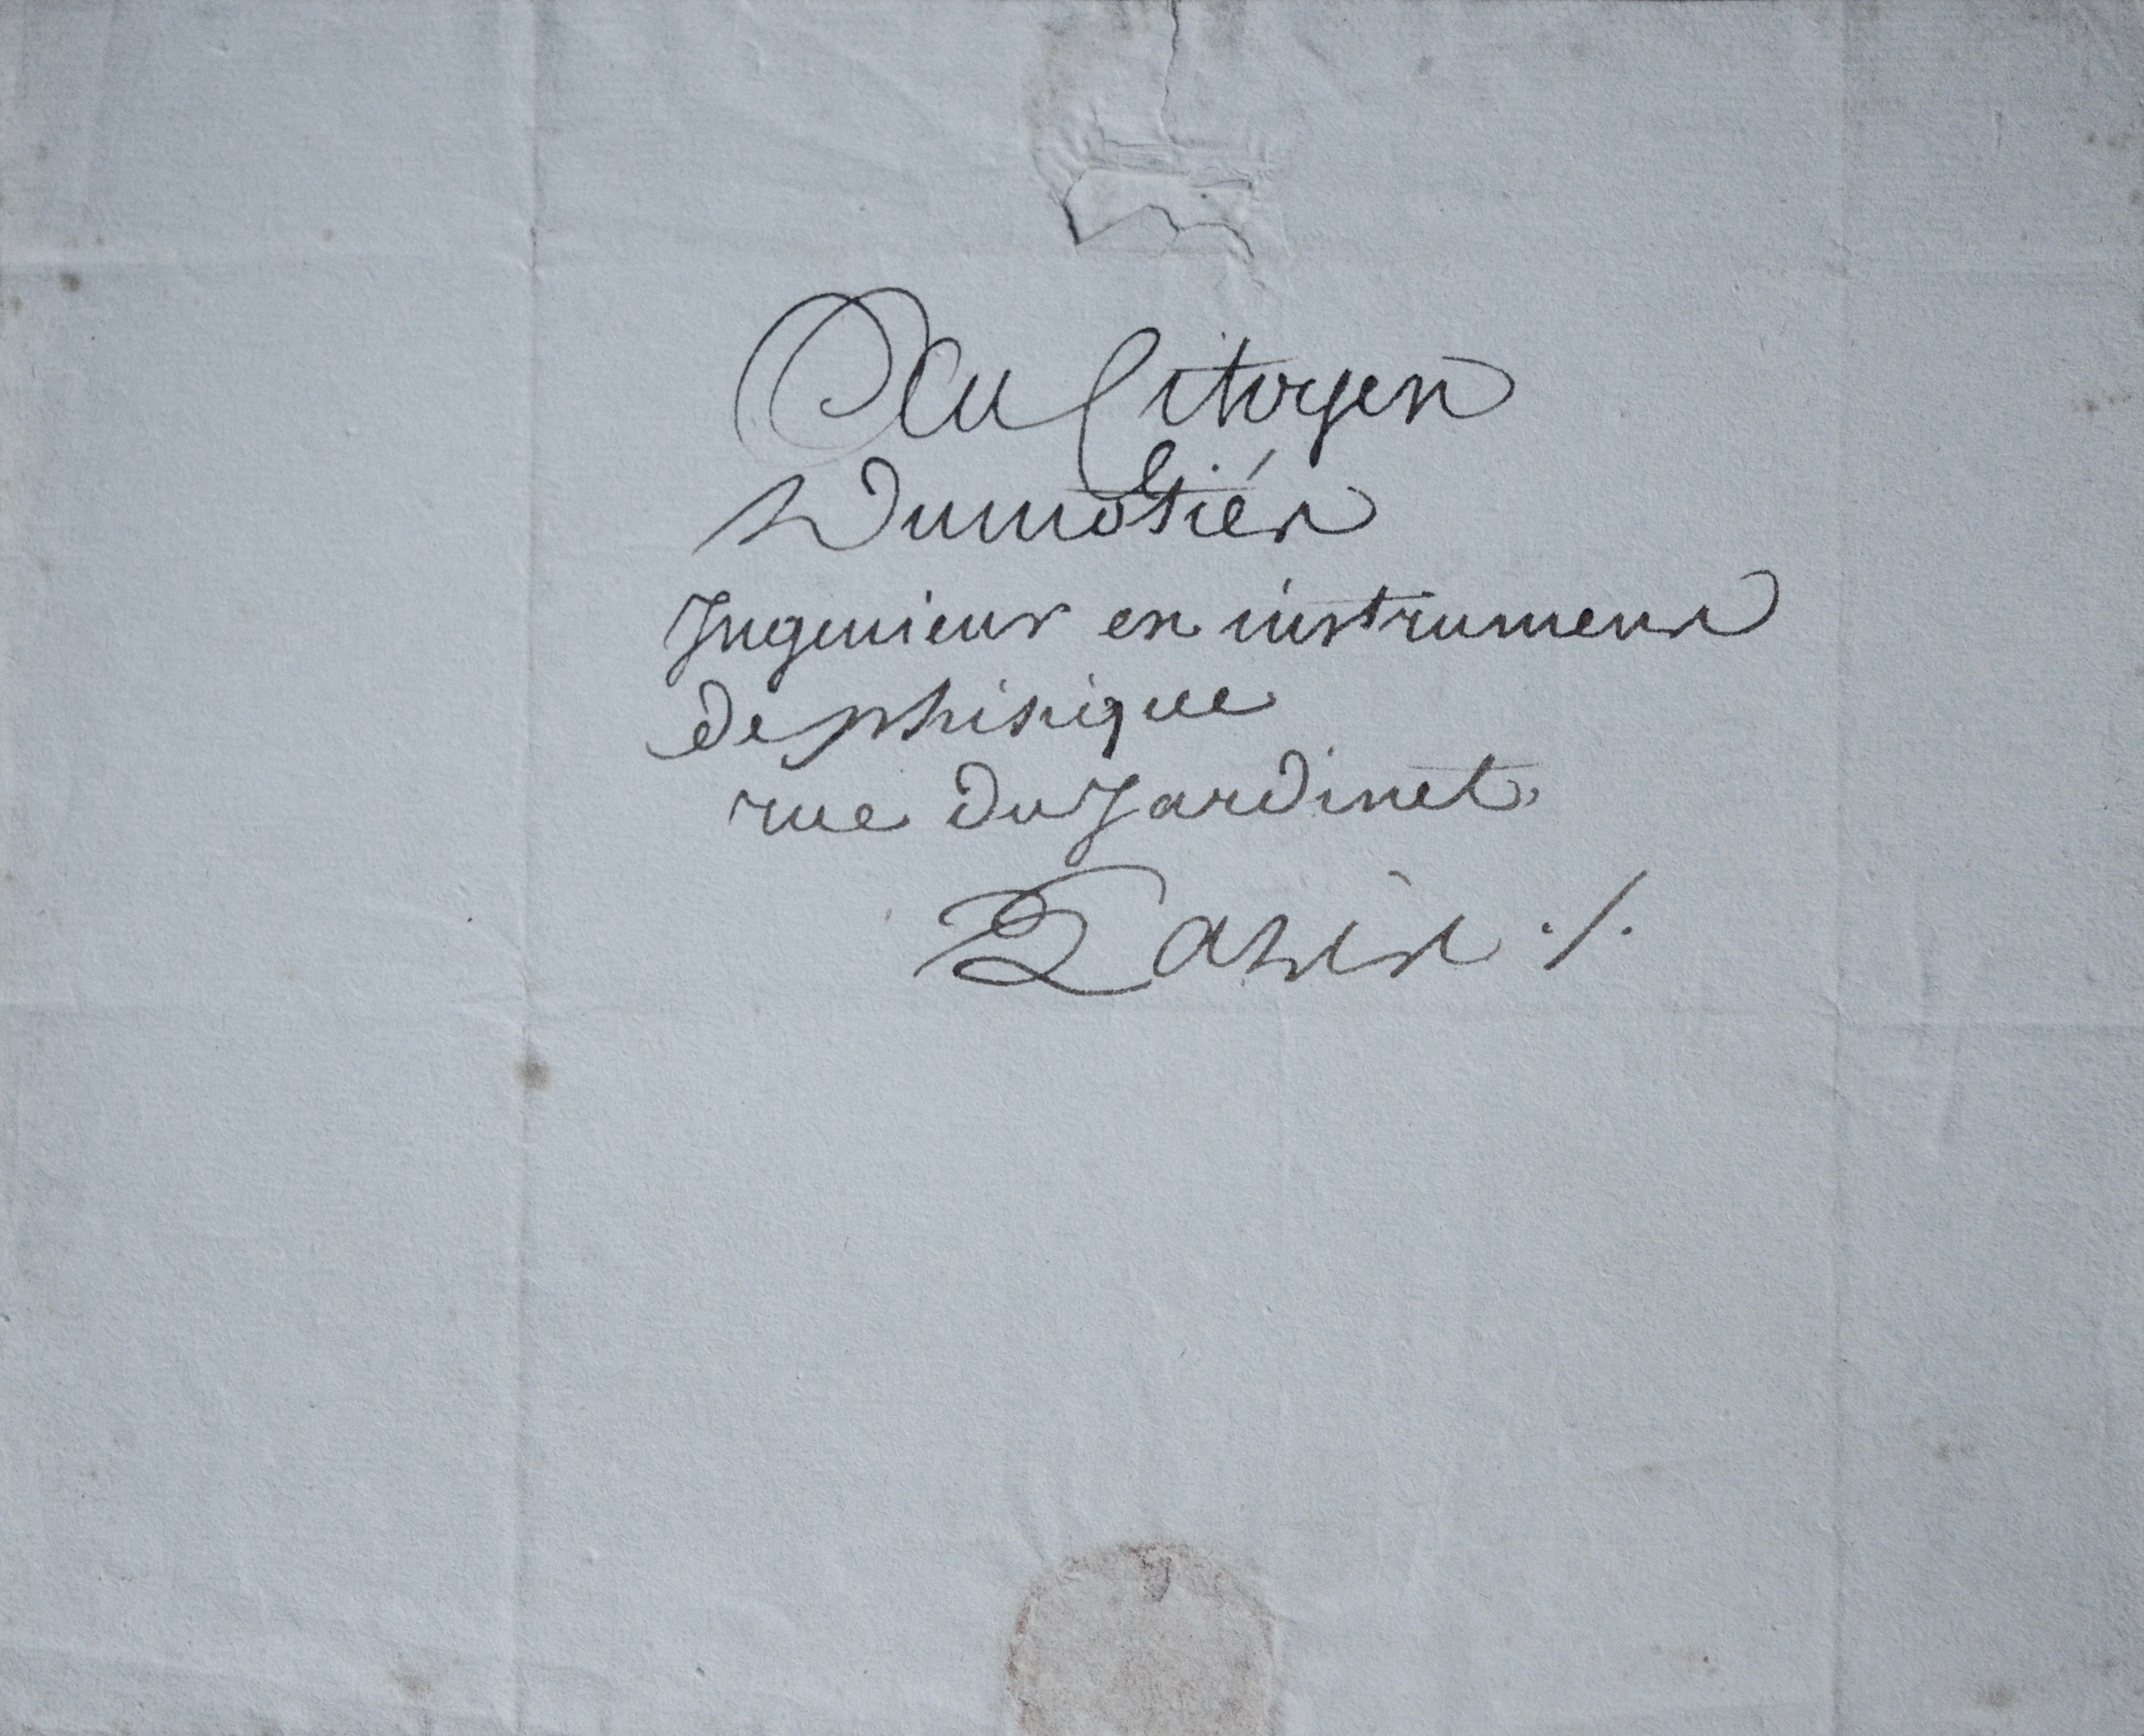 Au Citoyen
Dumotiér
Ingenieur en instrumens
de phisique
rue du Jardinet
Paris ./.